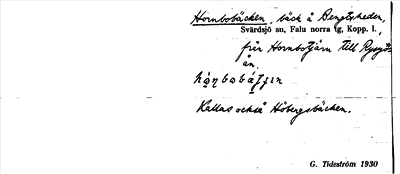 Hornbobäcken, bäck å Bengtsheden,
Svärdsjö sn, Falu norra tg, Kopp. l.,
från Hornbotjärn till Rysjö-
ån.
Kallas också Höbergsbäcken.
G. Tideström 1930